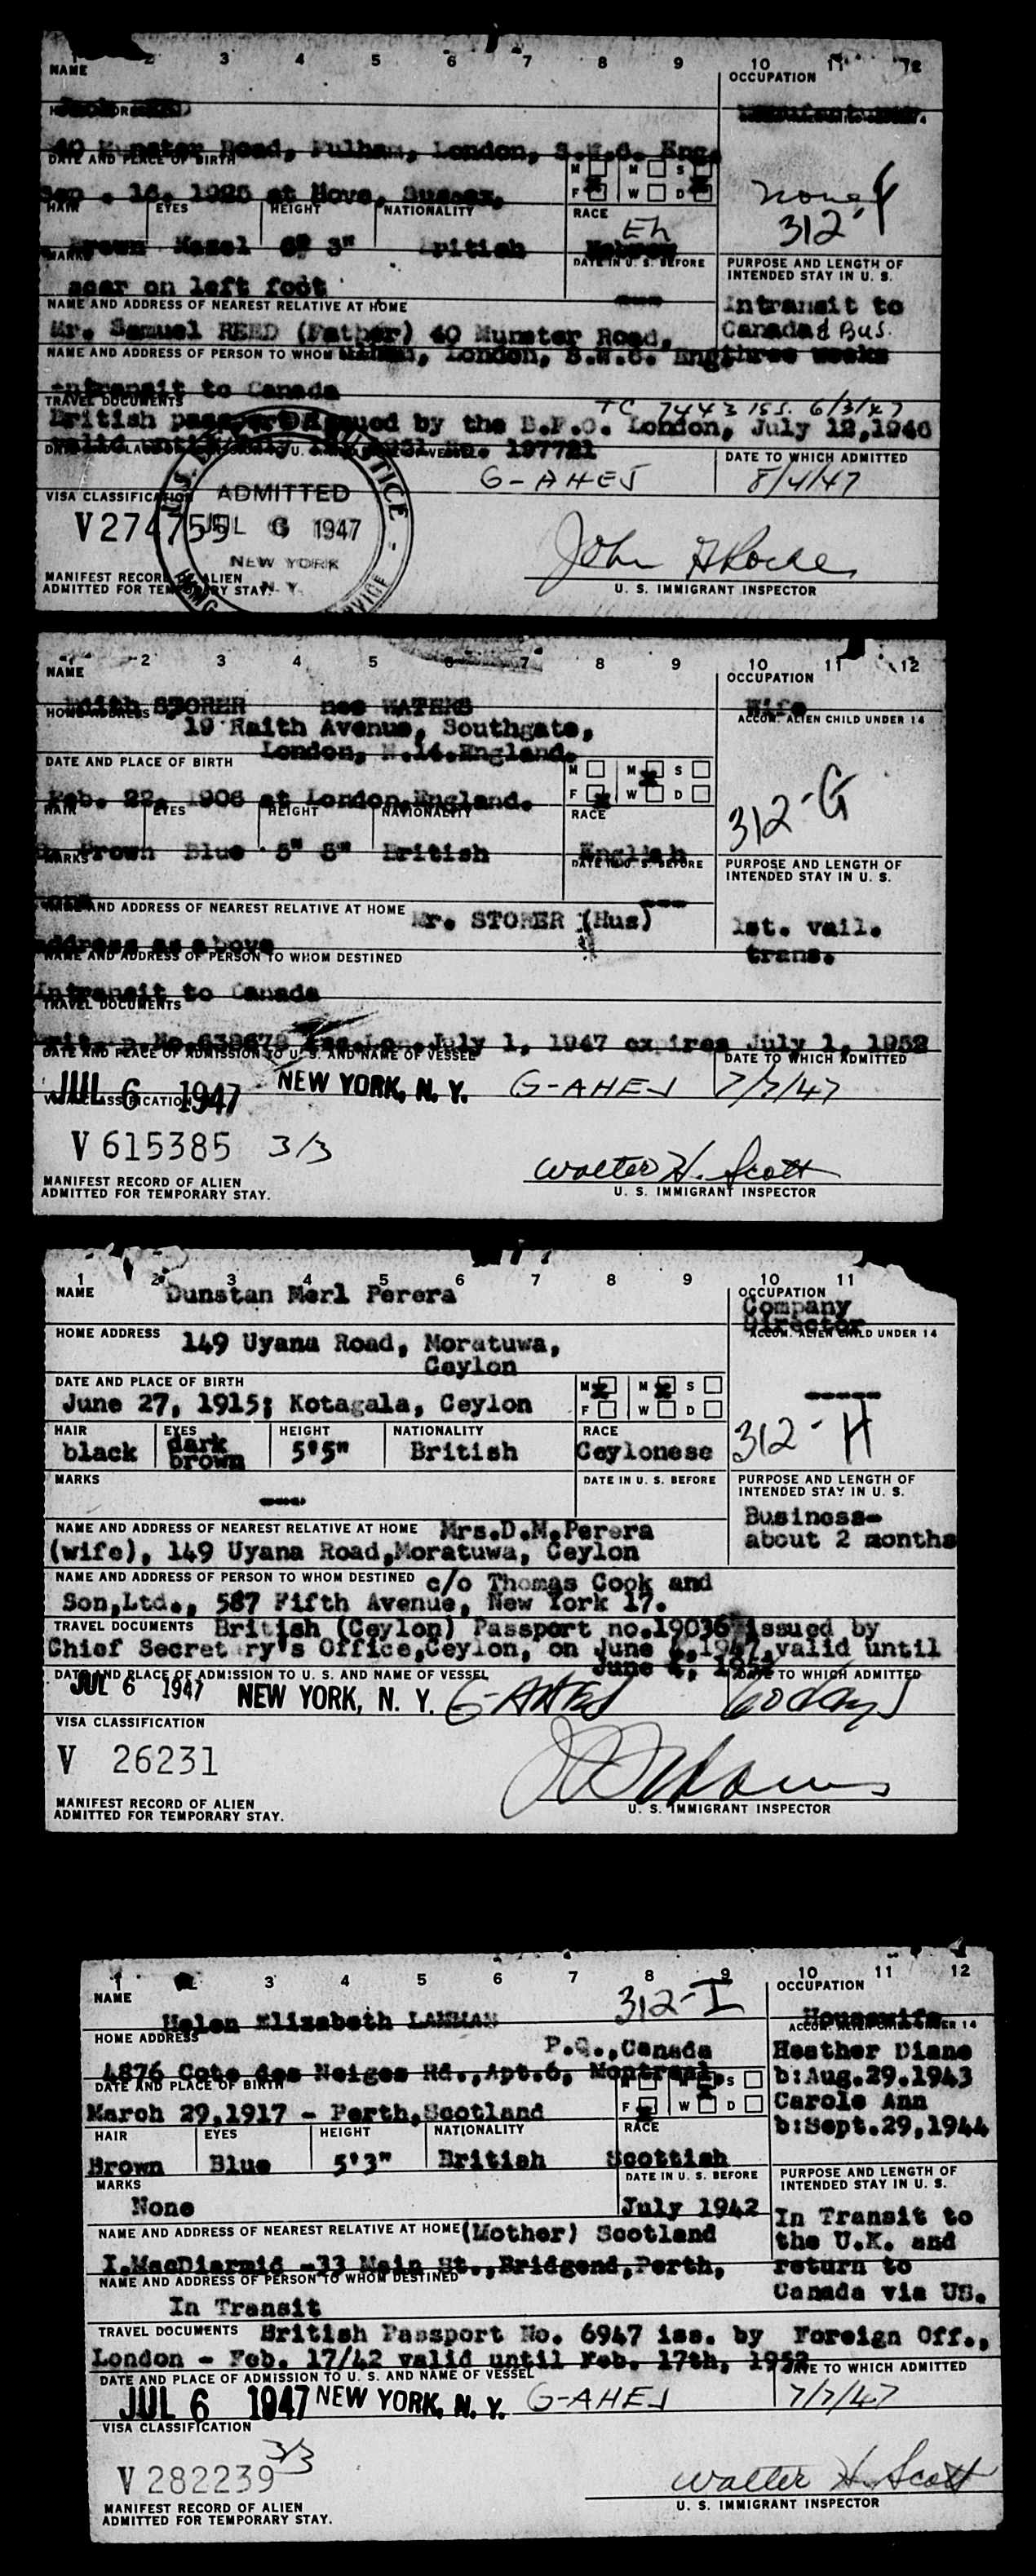 1 2 3 4 5 6 7 8 9 10 11 12
NAME OCCUPATION
40 Munster Road, Fulham, London, S.W.6. Eng.
DATE AND PLACE OF BIRTH M M S
Sep . 16, 1925 at Hove, Sussex, F W D
HAIR EYES HEIGHT NATIONALITY RACE
none
312-f
Brown Hazel 6' 3" British Eh Hebrew
MARKS DATE IN U. S. BEFORE PURPOSE AND LENGTH OF
INTENDED STAY IN U. S.
scar on left foot ---
NAME AND ADDRESS OF NEAREST RELATIVE AT HOME Intransit to
Mr. Samuel REED (Father) 40 Munster Road, Canada & Bus.
NAME AND ADDRESS OF PERSON TO WHOM London, S.W.6. Eng three weeks
intransit to Canada
TRAVEL DOCUMENTS TC 7443 iss. 6/3/47
British passport issued by the B.F.O. London, July 12, 1946
valid until July 197721
G-AHEJ DATE TO WHICH ADMITTED
8/4/47
VISA CLASSIFICATION ADMITTED
V274755 JUL 6 1947
NEW YORK
N. Y.
MANIFEST RECORD OF ALIEN
ADMITTED FOR TEMPORARY STAY. U. S. IMMIGRANT INSPECTOR
2 3 4 5 6 7 8 9 10 11 12
NAME OCCUPATION
Edith STORER nee WATERS Wife
HOME ADDRESS ACCOM. ALIEN CHILD UNDER 14
19 Raith Avenue, Southgate,
London, N.14.England.
DATE AND PLACE OF BIRTH M M S
Feb. 22, 1906 at London,England. F W D
HAIR EYES HEIGHT NATIONALITY RACE
312-G
Brown Blue 5" 5" British English
MARKS DATE IN U. S. BEFORE PURPOSE AND LENGTH OF
INTENDED STAY IN U. S.
---
NAME AND ADDRESS OF NEAREST RELATIVE AT HOME Mr. STORER (Hus) 1st. vail.
address as above trans.
NAME AND ADDRESS OF PERSON TO WHOM DESTINED
Intransit to Canada
TRAVEL DOCUMENTS
Brit. p.No.639679 Iss.Lon.July 1, 1947 expires July 1, 1952
DATE AND PLACE OF ADMISSION TO U. S. AND NAME OF VESSEL DATE TO WHICH ADMITTED
JUL 6 1947 NEW YORK, N. Y. G-AHEJ 7/7/47
VISA CLASSIFICATION
V 615385 3/3
Walter H. Scott
MANIFEST RECORD OF ALIEN
ADMITTED FOR TEMPORARY STAY. U. S. IMMIGRANT INSPECTOR
1 2 3 4 5 6 7 8 9 10 11
NAME Dunstan Merl Perera OCCUPATION
Company
Director
ACCOM. ALIEN CHILD UNDER 14
HOME ADDRESS 149 Uyana Road, Moratuwa,
Ceylon
DATE AND PLACE OF BIRTH M M S
June 27, 1915; Kotagala, Ceylon F W D
-----
HAIR EYES HEIGHT NATIONALITY RACE
black dark brown 5'5" British Ceylonese 312-H
MARKS DATE IN U. S. BEFORE PURPOSE AND LENGTH OF
INTENDED STAY IN U. S.
---
Business-
about 2 months
NAME AND ADDRESS OF NEAREST RELATIVE AT HOME Mrs.D.M.Perera
(wife), 149 Uyana Road,Moratuwa, Ceylon
NAME AND ADDRESS OF PERSON TO WHOM DESTINED c/o Thomas Cook and
Son,Ltd., 587 Fifth Avenue, New York 17.
TRAVEL DOCUMENTS British (Ceylon) Passport no.19036 issued by
Chief Secretary's Office,Ceylon, on June 4,1947,valid until
June 4, 1952
DATE AND PLACE OF ADMISSION TO U. S. AND NAME OF VESSEL DATE TO WHICH ADMITTED
JUL 6 1947 NEW YORK, N. Y. G-AHEJ 60 days
VISA CLASSIFICATION
V 26231
MANIFEST RECORD OF ALIEN
ADMITTED FOR TEMPORARY STAY. U. S. IMMIGRANT INSPECTOR
1 3 4 5 6 7 8 9 10 11 12
NAME 312-I OCCUPATION
Helen Elizabeth LAMMAN Housewife
HOME ADDRESS ACCOM. ALIEN CHILD UNDER 14
P.Q.,Canada Heather Diane
4876 Cote des Neiges Rd.,Apt.6, Montreal, b:Aug.29.1943
DATE AND PLACE OF BIRTH M M S Carole Ann
March 29,1917 - Perth,Scotland F W D b:Sept.29,1944
HAIR EYES HEIGHT NATIONALITY RACE
Brown Blue 5'3" British Scottish
MARKS DATE IN U. S. BEFORE PURPOSE AND LENGTH OF
INTENDED STAY IN U. S.
None July 1942 In Transit to
NAME AND ADDRESS OF NEAREST RELATIVE AT HOME (Mother) Scotland the U.K. and
I.MacDiarmid -33 Main St.,Bridgend,Perth, return to
NAME AND ADDRESS OF PERSON TO WHOM DESTINED Canada via US.
In Transit
TRAVEL DOCUMENTS British Passport No. 6947 iss. by Foreign Off.,
London - Feb. 17/42 valid until Feb. 17th, 1952
DATE AND PLACE OF ADMISSION TO U. S. AND NAME OF VESSEL DATE TO WHICH ADMITTED
JUL 6 1947 NEW YORK, N. Y. G-AHEJ 7/7/47
VISA CLASSIFICATION
3/3
V 282239
Walter H. Scott
MANIFEST RECORD OF ALIEN
ADMITTED FOR TEMPORARY STAY. U. S. IMMIGRANT INSPECTOR